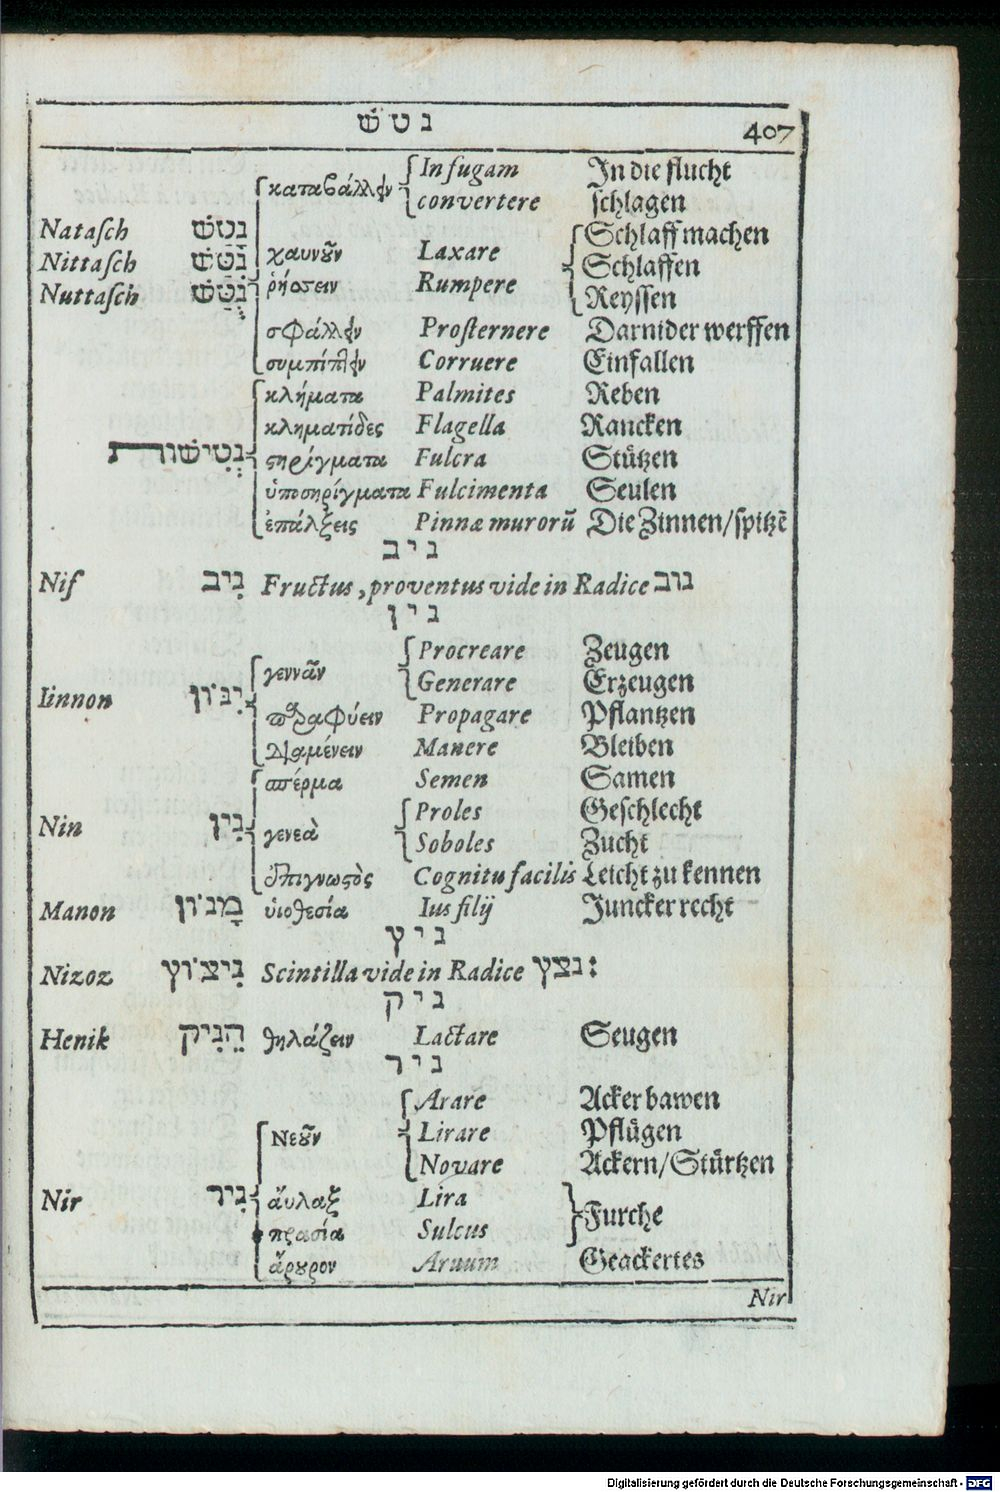 נטש 407
καταβάλλειν In fugam In die flucht
convertere schlagen
Natasch נטש Schlaff machen
χαυνοῦν Laxare
Nittasch נטש Schlaffen
Nuttasch נטש ῥήσσειν Rumpere Reyssen
σφάλλειν Prosternere Darnider werffen
συμπίπτειν Corruere Einfallen
κλήματα Palmites Reben
κληματίδες Flagella Rancken
נטישות στηρίγματα Fulcra Stützen
ὑποστηρίγματα Fulcimenta Seulen
ἐπάλξεις Pinnæ murorũ Die Zinnen/spitzẽ
ניב
Nif ניב Fructus, proventus vide in Radice נוב
נין
γεννᾶν Procreare Zeugen
Generare Erzeugen
Iinnon ינון παραφύειν Propagare Pflantzen
διαμένειν Manere Bleiben
σπέρμα Semen Samen
Proles Geschlecht
Nin נין γενεὰ
Soboles Zucht
ἐπιγνωστὸς Cognitu facilis Leicht zu kennen
Manon מנון υἱοθεσία Ius filij Juncker recht
ניץ
Nizoz ניצוץ Scintilla vide in Radice נצץ:
ניק
Henik הניק θηλάζειν Lactare Seugen
ניר
Arare Acker bawen
Νεοῦν Lirare Pflügen
Novare Ackern/Stürtzen
Nir ניר ἄυλαξ Lira
Furche
πρασία Sulcus
ἄρουρον Aruum Geackertes
Nir
Digitalisierung gefördert durch die Deutsche Forschungsgemeinschaft - DFG